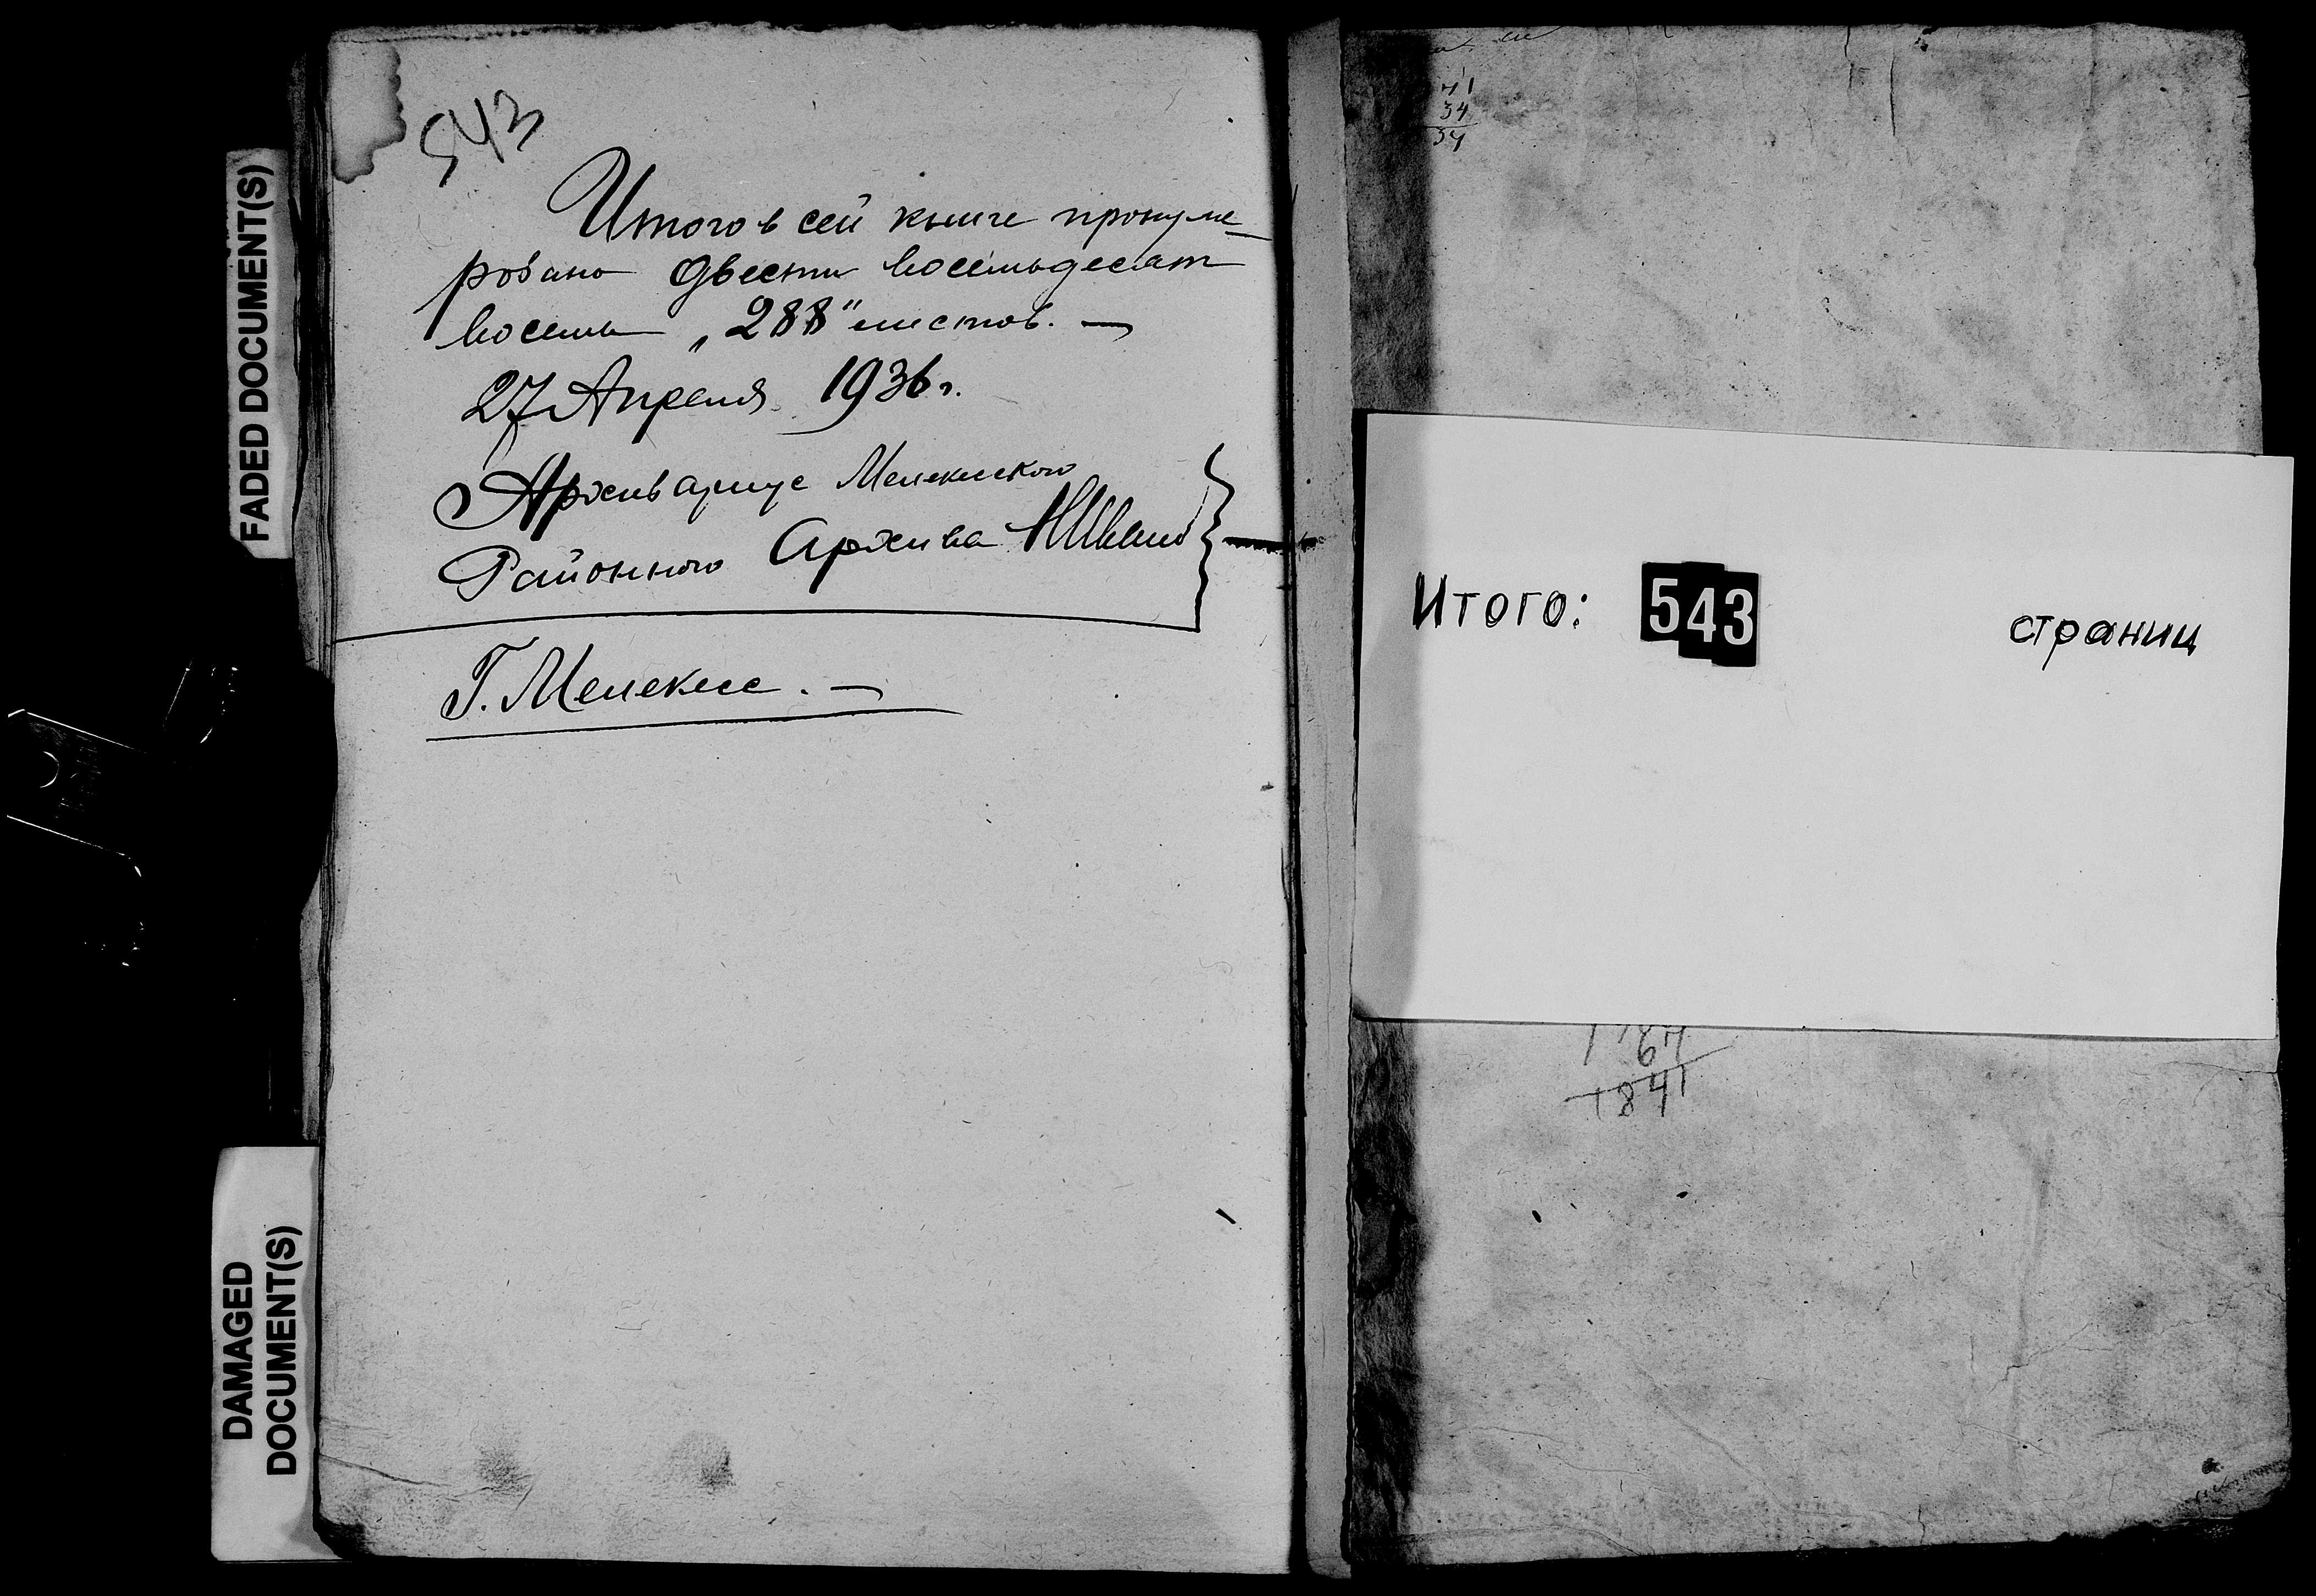 FADED DOCUMENT(S)
DAMAGED
DOCUMENT(S)
543
Итого в сей книге прокуме-
ровано двести восемьдесят
восемь „288" листов. —
27 Апреля 1936 г.
Архивариус Мелекесского
Районного Архива
Г. Мелекесс. —
41
34
34
Итого: 543 страниц
67
1841